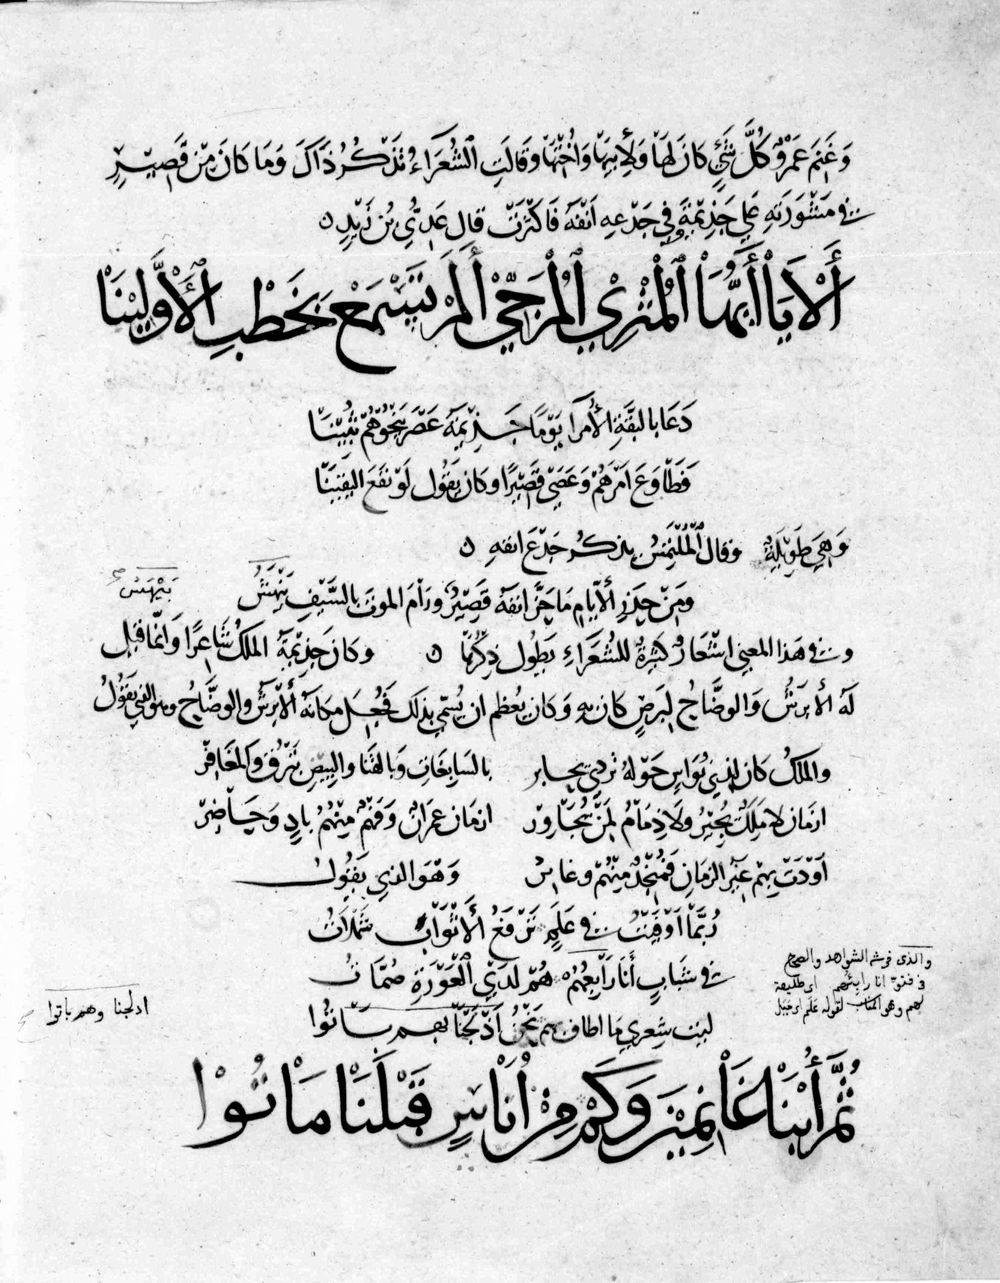 وَغَنِمَ عَمْرٌو كُلَّ شَيْءٍ كَانَ لَهَا وَلِأَبِيهَا وَأُخْتِهَا وَقَالَتِ الشُّعَرَاءُ تَذْكُرُ ذَاكَ وَمَا كَانَ مِنْ قَصِيْرٍ
فِي مَشْوَرَتِهِ عَلَى جَذِيْمَةَ وَفِي جَدْعِهِ أَنْفَهُ فَأَكْثَرَتْ قَالَ عَدِيُّ بْنُ زَيْدٍ ه
أَلَا يَا أَيُّهَا الْمُثْرِي الْمُرَجَّى أَلَمْ تَسْمَعْ بِخَطْبِ الْأَوَّلِيْنَا
دَعَا بِالبَقَّةِ الأُمَرَا يَوْمًا جَذِيْمَةُ عَصْرَ يَنْجُوهُمْ ثُبِيْنَا
فَطَاوَعَ أَمْرَهُمْ وَعَصَى قَصِيْرًا وَكَانَ يَقُولُ لَوْ نَفَعَ اليَقِيْنَا
وَهِيَ طَوِيْلَةٌ وَقَالَ الْمُتَلَمِّسُ يَذْكُرُ جَدْعَ أَنْفِهِ ه
وَمِنْ حَذَرِ الأَيَّامِ مَا حَزَّ أَنْفَهُ قَصِيْرٌ وَرَامَ المَوتَ بِالسَّيْفِ بَيْهَسُ
بَيْهَسُ
وَفِي هَذَا المَعْنَى أَشْعَارٌ كَثِيْرَةٌ لِلشُّعَرَاءِ يَطُولُ ذِكْرُهَا ه وَكَانَ جَذِيْمَةُ المَلِكُ شَاعِرًا وَإِنَّمَا قِيْلَ
لَهُ الأَبْرَشُ وَالوَضَّاحُ لِبَرَصٍ كَانَ بِهِ وَكَانَ يُعْظِمُ أَنْ يُسَمَّى بِذَلِكَ فَجُعِلَ مَكَانَهُ الأَبْرَشُ وَالوَضَّاحُ وَهُوَ الَّذِي يَقُولُ
وَالمُلْكُ كَانَ لِذِي نُوَاسٍ حَوْلَهُ تَرْدِي يُحَابِر بِالسَّابِغَاتِ وَبِالقَنَا وَالبِيْضِ تَبْرُقُ وَالمَغَافِرْ
أَزْمَانَ لَا مَلِكٌ يُجِيْرُ وَلَا ذِمَامٌ لِمَنْ يُجَاوِرْ أَزْمَانَ عِمْرَانٌ وَفَهْمٌ مِنْهُمُ بَادٍ وَحَاضِرْ
أَوْدَتْ بِهِمْ غِيَرُ الزَّمَانِ فَمُنْجِدٌ مِنْهُمْ وَغَائِرْ وَهُوَ الَّذِي يَقُولُ
رُبَّمَا أَوْفَيْتُ فِي عَلَمٍ تَرْفَعُ الأَثْوَابَ شَمَالَاتُ
فِي شَبَابٍ أَنَا رَابِعُهُمْ هُمْ لَدَى الْعَوْرَةِ صُمَاتُ
والذى فى شرح الشواهد والصحاح
فى فتوّ انا رابئهم اى طليعة
لهم وهو المناسب لقوله علم اى جبل
لَيْتَ شِعْرِي مَا أَطَافَ بِهِمْ نَحْنُ أَدْلَجْنَا وَهُمْ بَاتُوا
ادلجنا وهم باتوا
ثُمَّ أُبْنَا غَانِمِيْنَ وَكَمْ مِنْ أُنَاسٍ قَبْلَنَا مَاتُوا